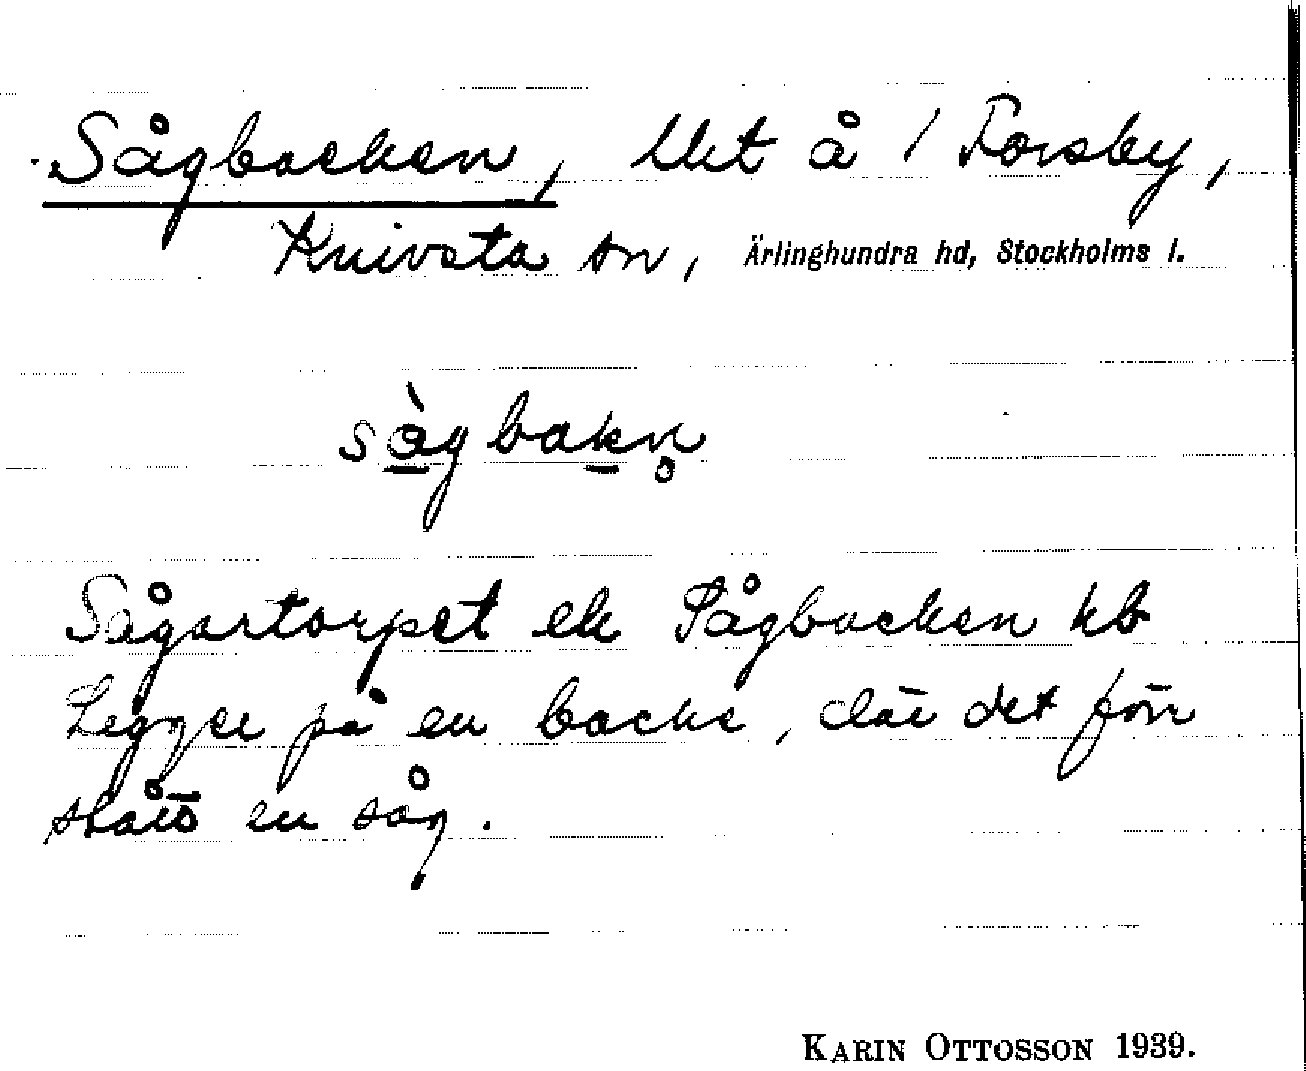 Sågbacken, lht å 1 Forsby,
Knivsta sn, Ärlinghundra hd, Stockholms l.
så̀gbakn̥
Sågartorpet el. Sågbacken kb
Ligger på en backe, där det förr
stått en såg.
KARIN OTTOSSON 1939.